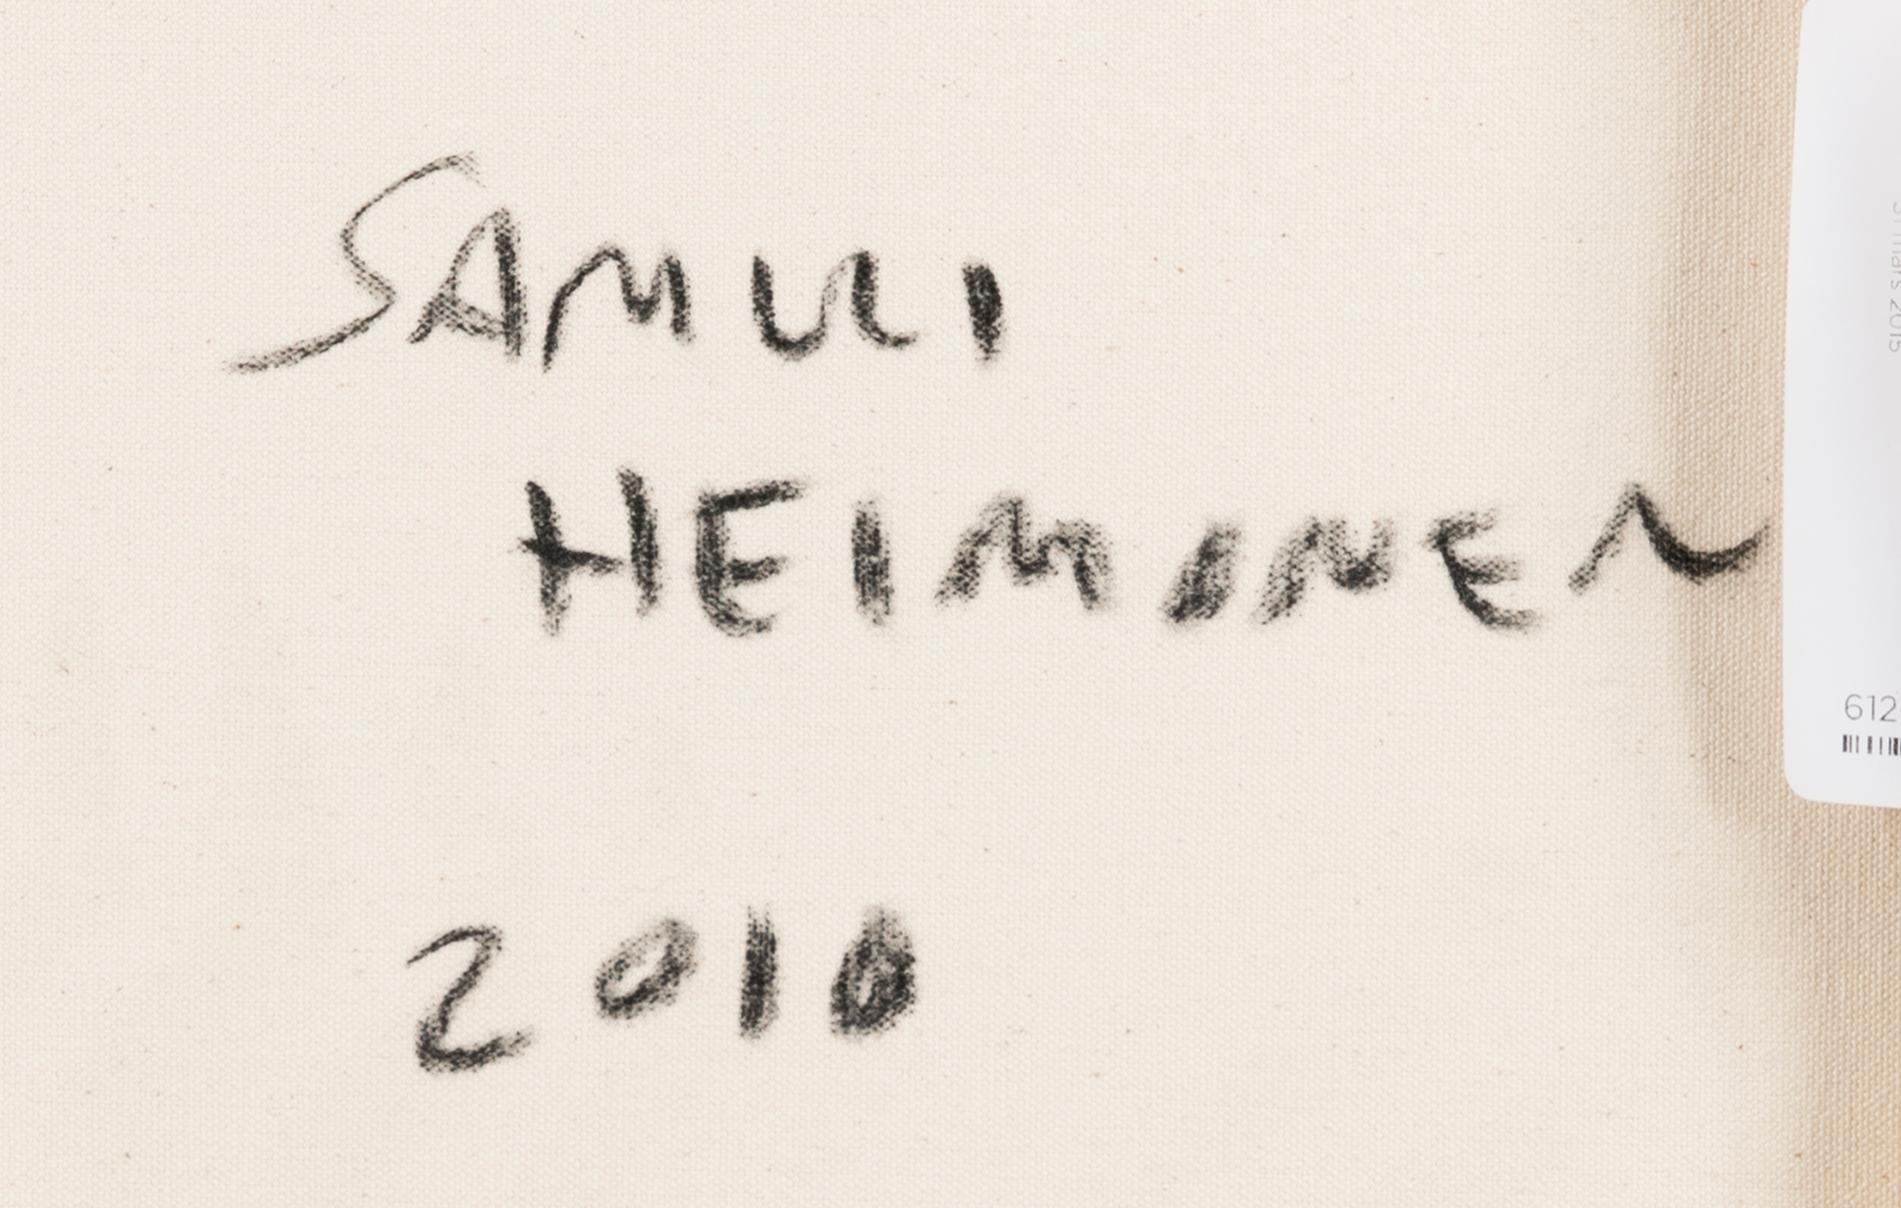 SAMULI
HEIMINEN
2010
mars 2015
612